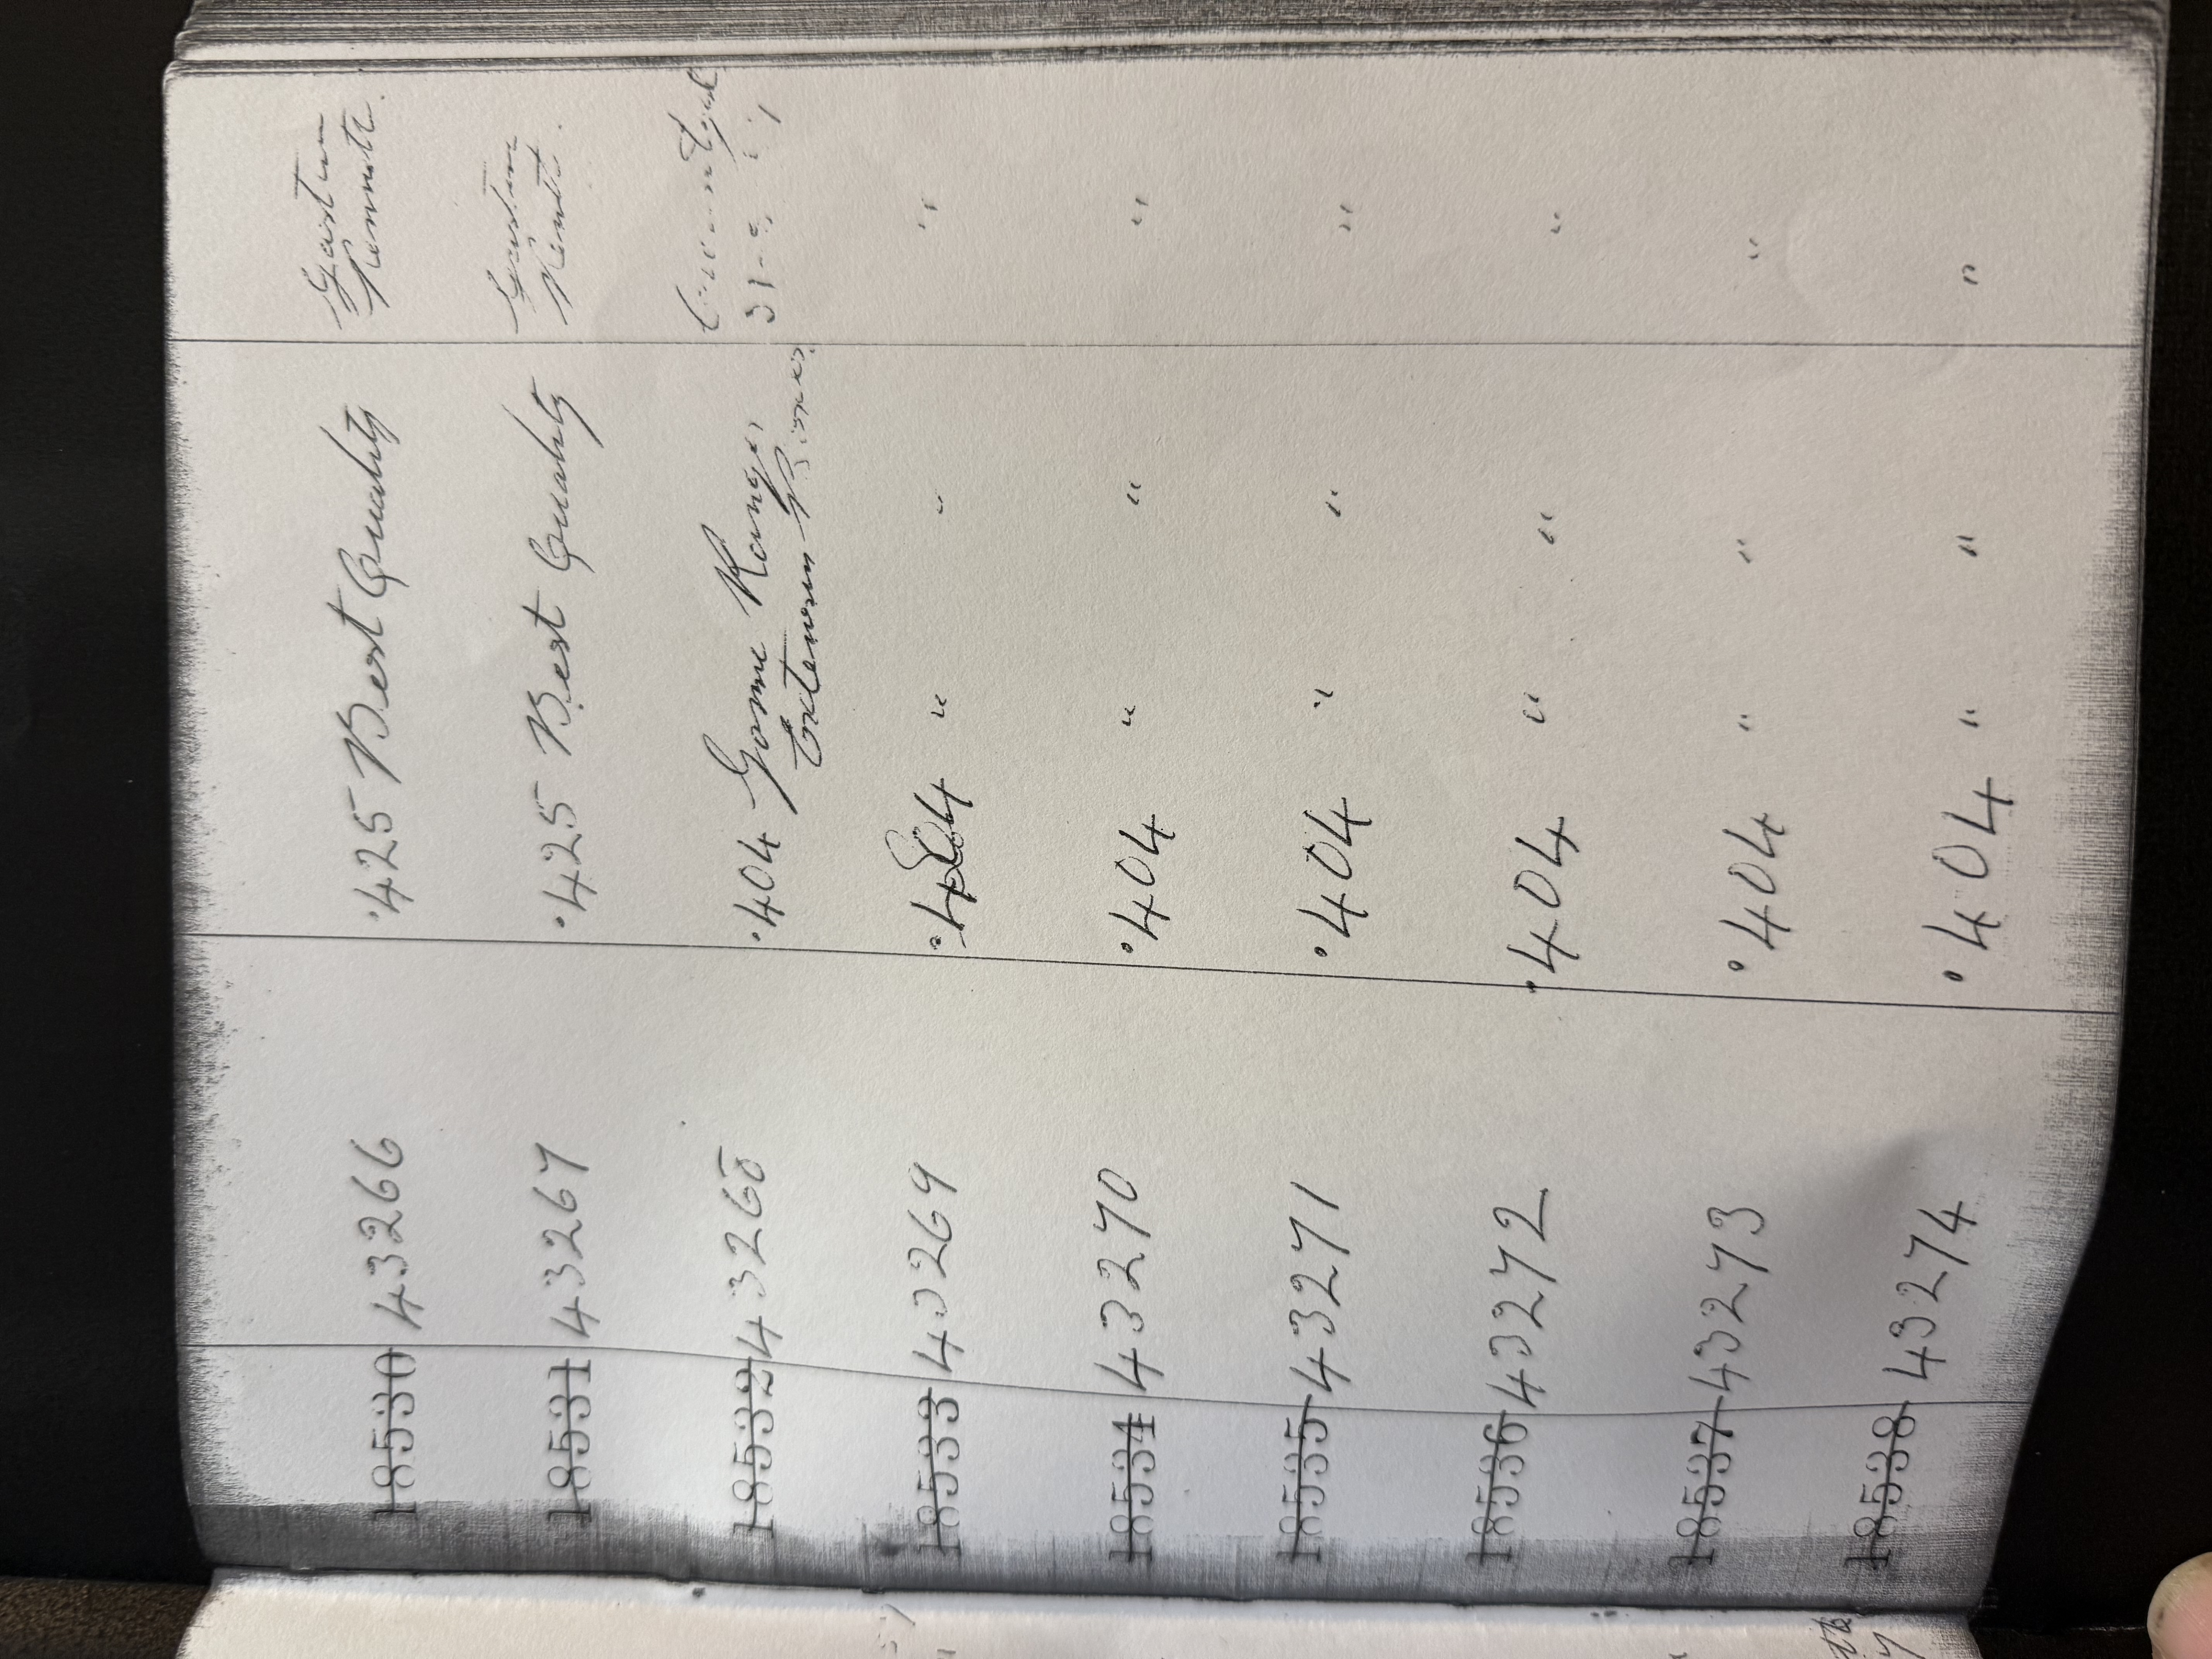 18530 43266 .425 Best Quality Gaston Rennette.
18531 43267 .425 Best Quality Gaston Rennett.
18532 43268 .404 Game Ranger
Extension
18533 43269 .404 " " "
18534 43270 .404 " " "
18535 43271 .404 " " "
18536 43272 .404 " " "
18537 43273 .404 " " "
18538 43274 .404 " " "